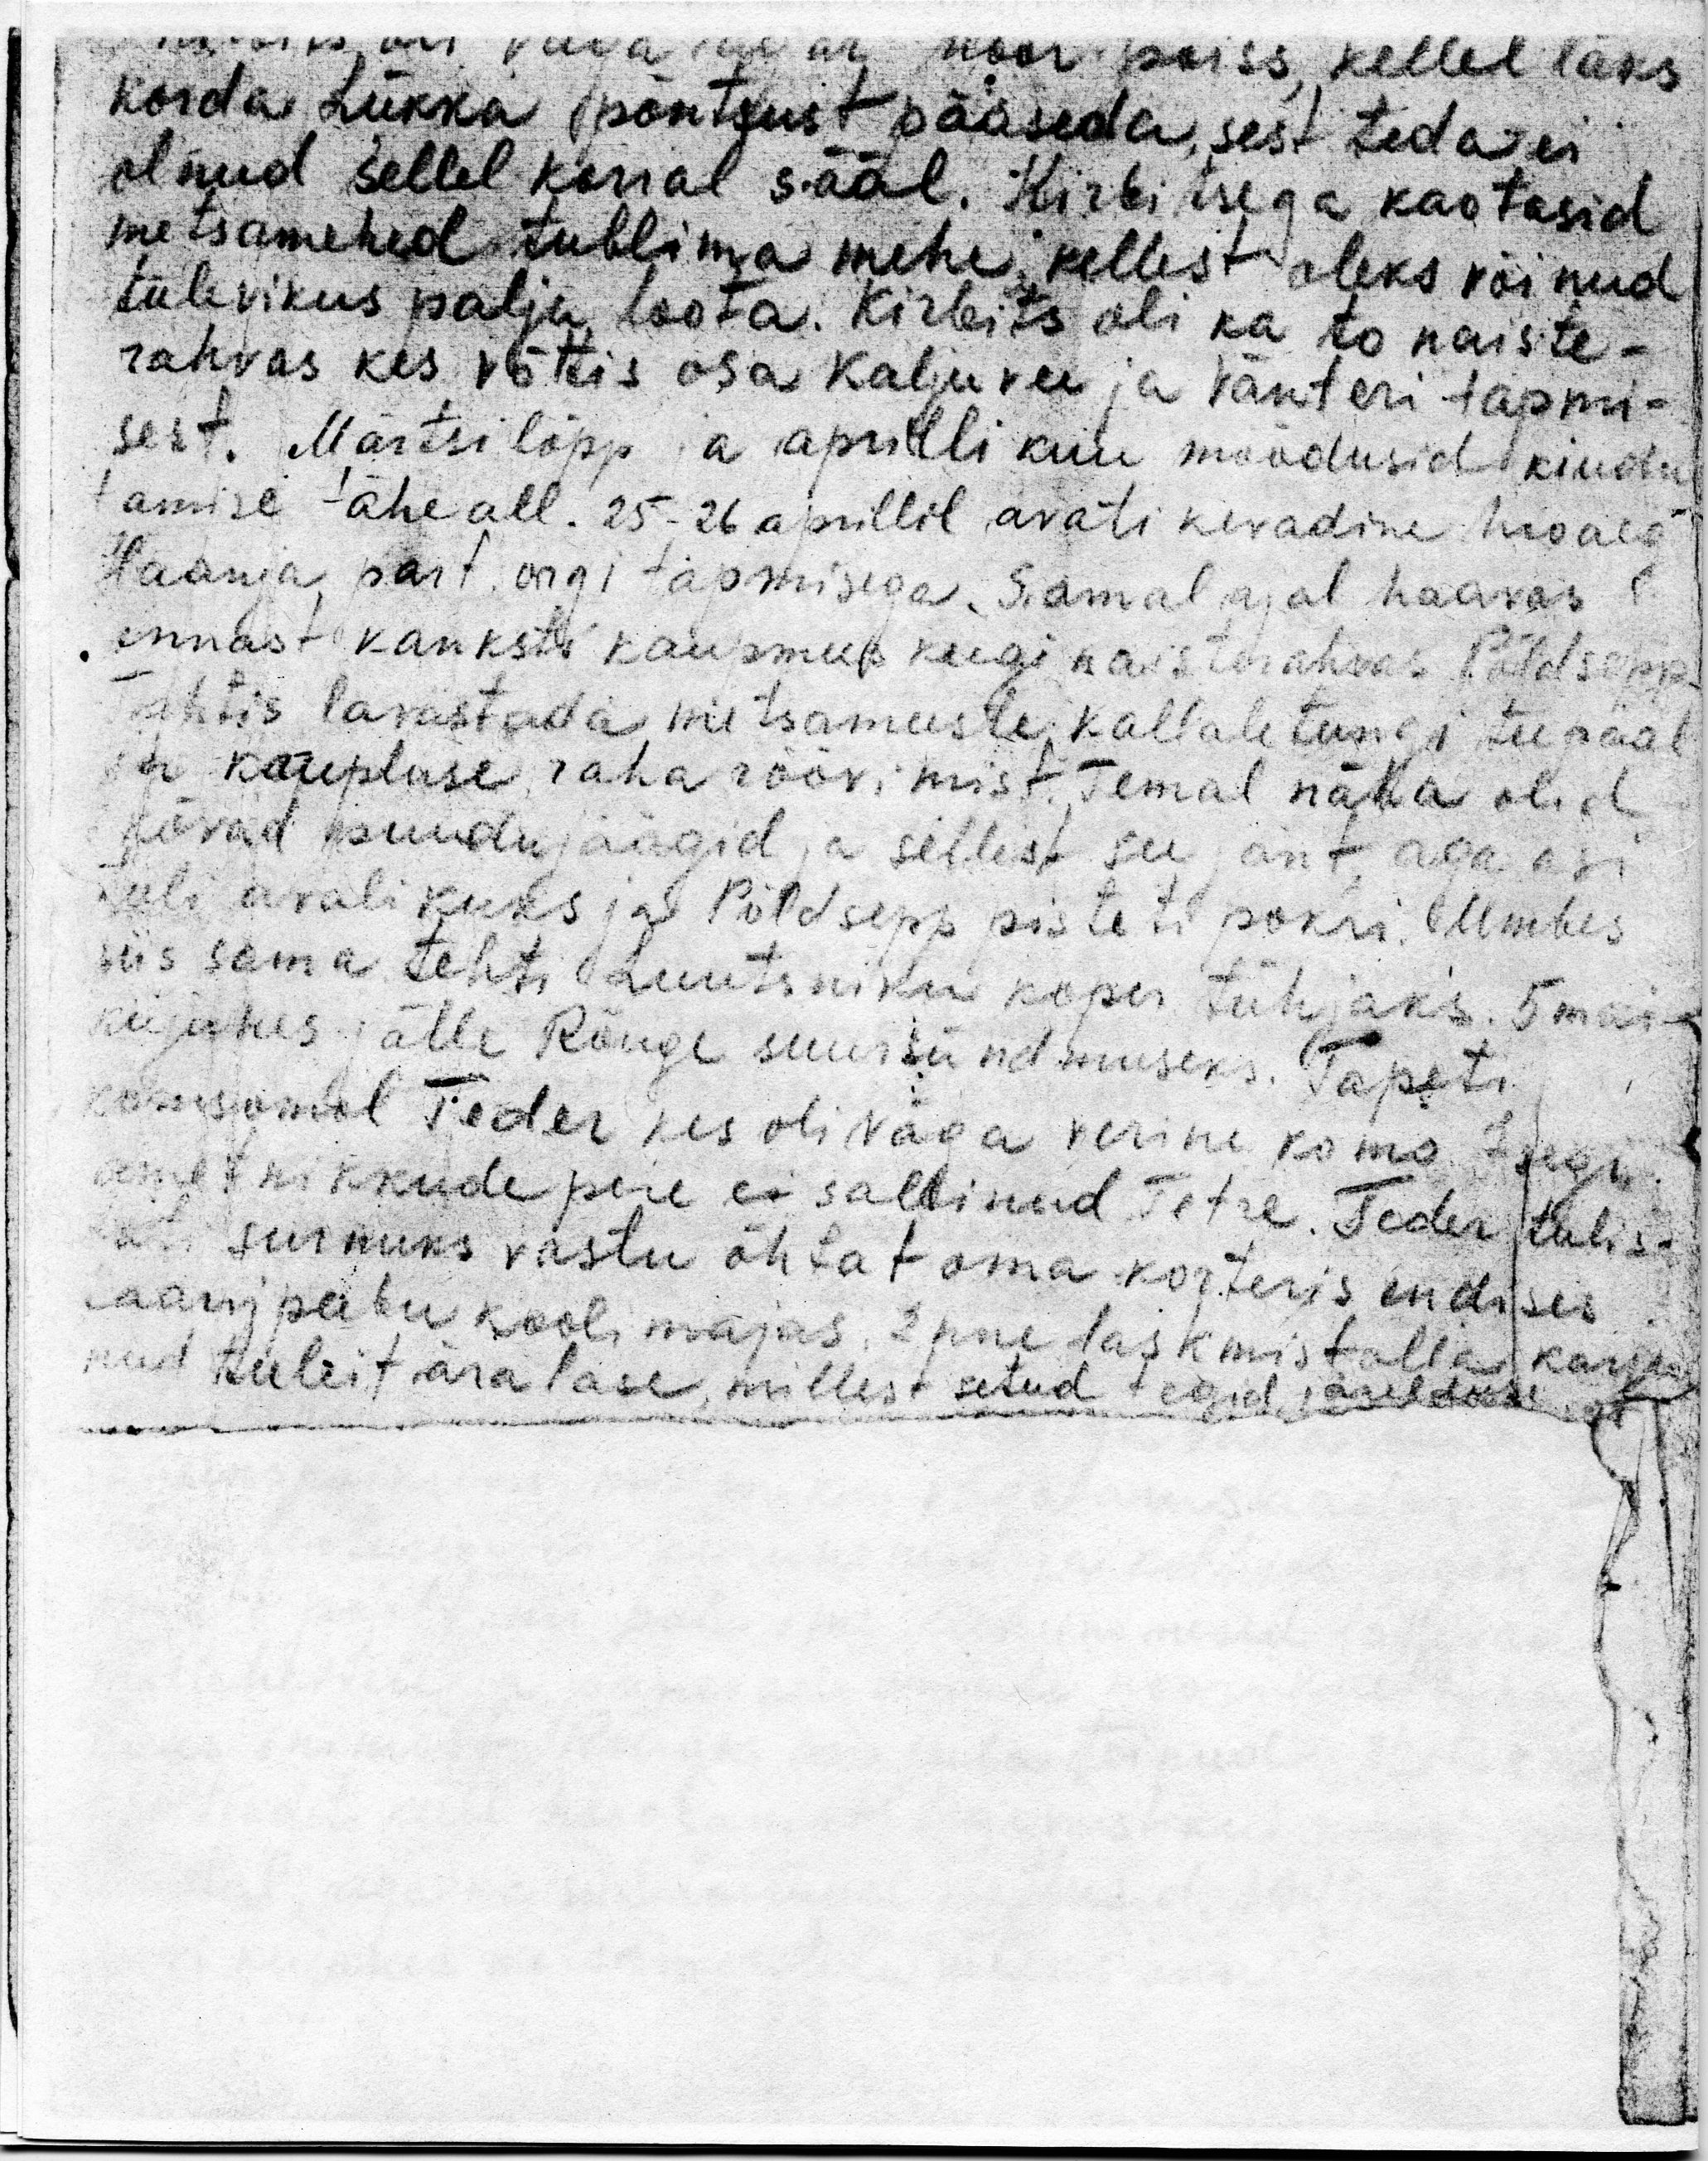 noor poiss, kellel läks
korda Lükka pontsust pääseda, sest teda ei
olnud sellel korral sääl. Kirbitsega kaotasid
metsamehed tublima mehe, kellest oleks võinud
tulevikus palju loota. Kirbits oli ka to naiste-
rahvas kes võttis osa Kaljuvee ja Vänteri tapmi-
sest. Märtsi lõpp ja aprilli kuu möödusid kindu
tamise tähe all. 25-26 aprillil avati kevadine hooaeg
Haanja part. orgi tapmisega. Samal ajal haavas
ennast Kanksti kaupmees keegi naisterahvas Põldsepp
Tahtis lavastada metsameeste kallaletungi teepääl
ja kaupluse raha röövimist. Temal näha olid
kõvad puudujäägid ja sellest see jant, aga asi
tuli avalikuks ja Põldsepp pisteti pokri. Umbes
siis sama tehti Luutsniku koper tühjaks. 5 mai
kujunes jälle Rõuge suursündmuseks. Tapeti
komsomol Teder kes oli väga verine komo. Isegi
ametnikkude pere ei sallinud Tetre. Teder tulis-
tati surnuks vastu õhtat oma korteris endises
Saarijpeebu koolimajas. 2 pne laskmist olla karju
nud tuleit ära lase, millest setud tegid järelduse et